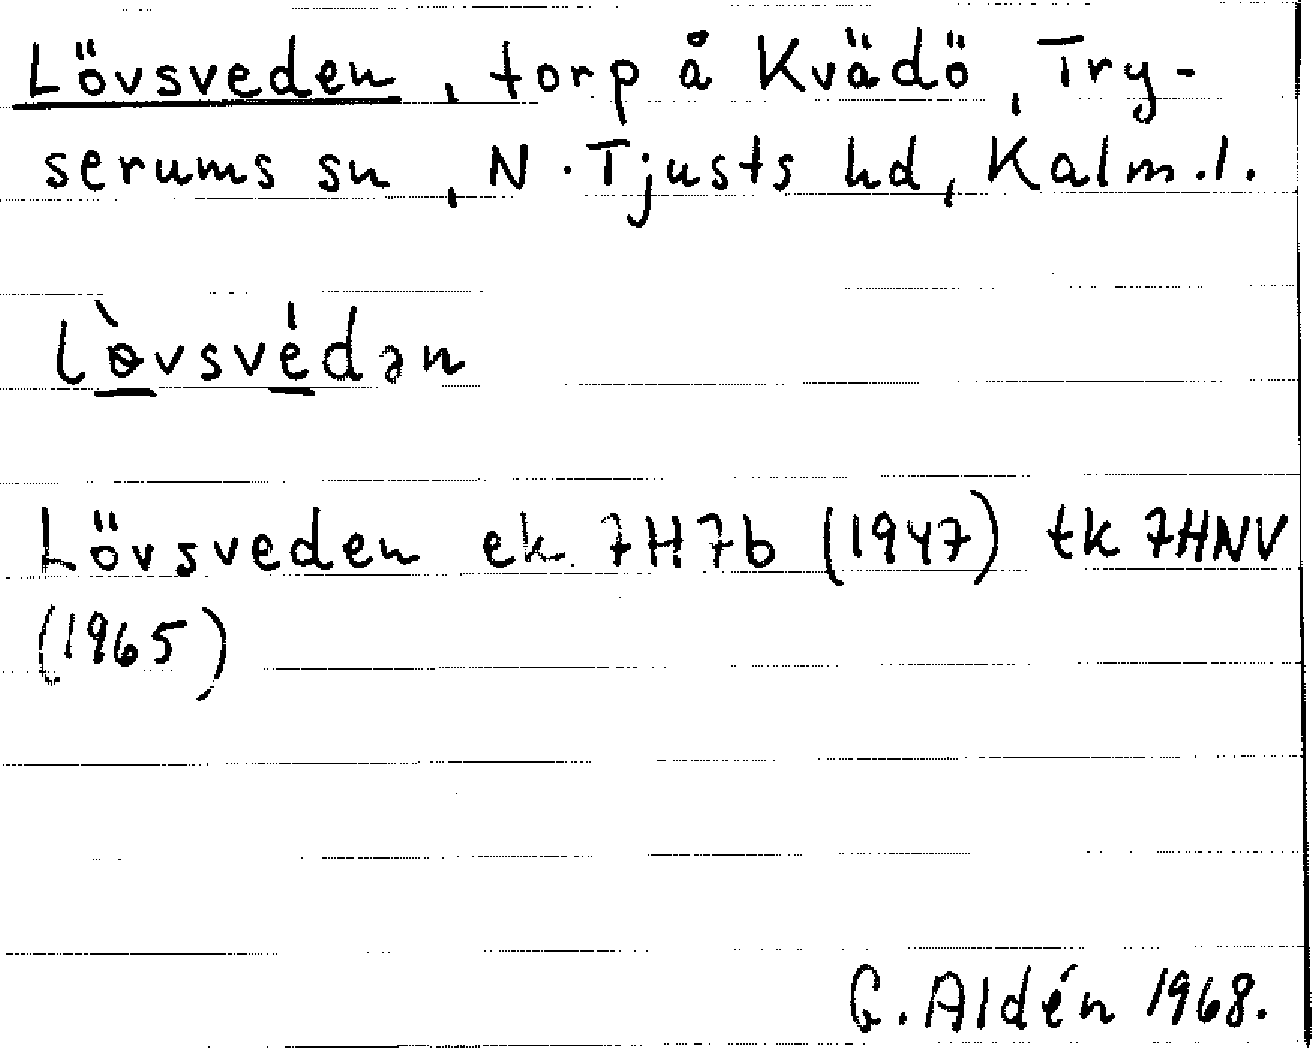 Lövsveden, torp å Kvädö, Try-
serums sn, N. Tjusts hd, Kalm.l.
lɵ̀vsvédən
Lövsveden ek 7H7b (1947) tk 7HNV
(1965)
G. Aldén 1968.